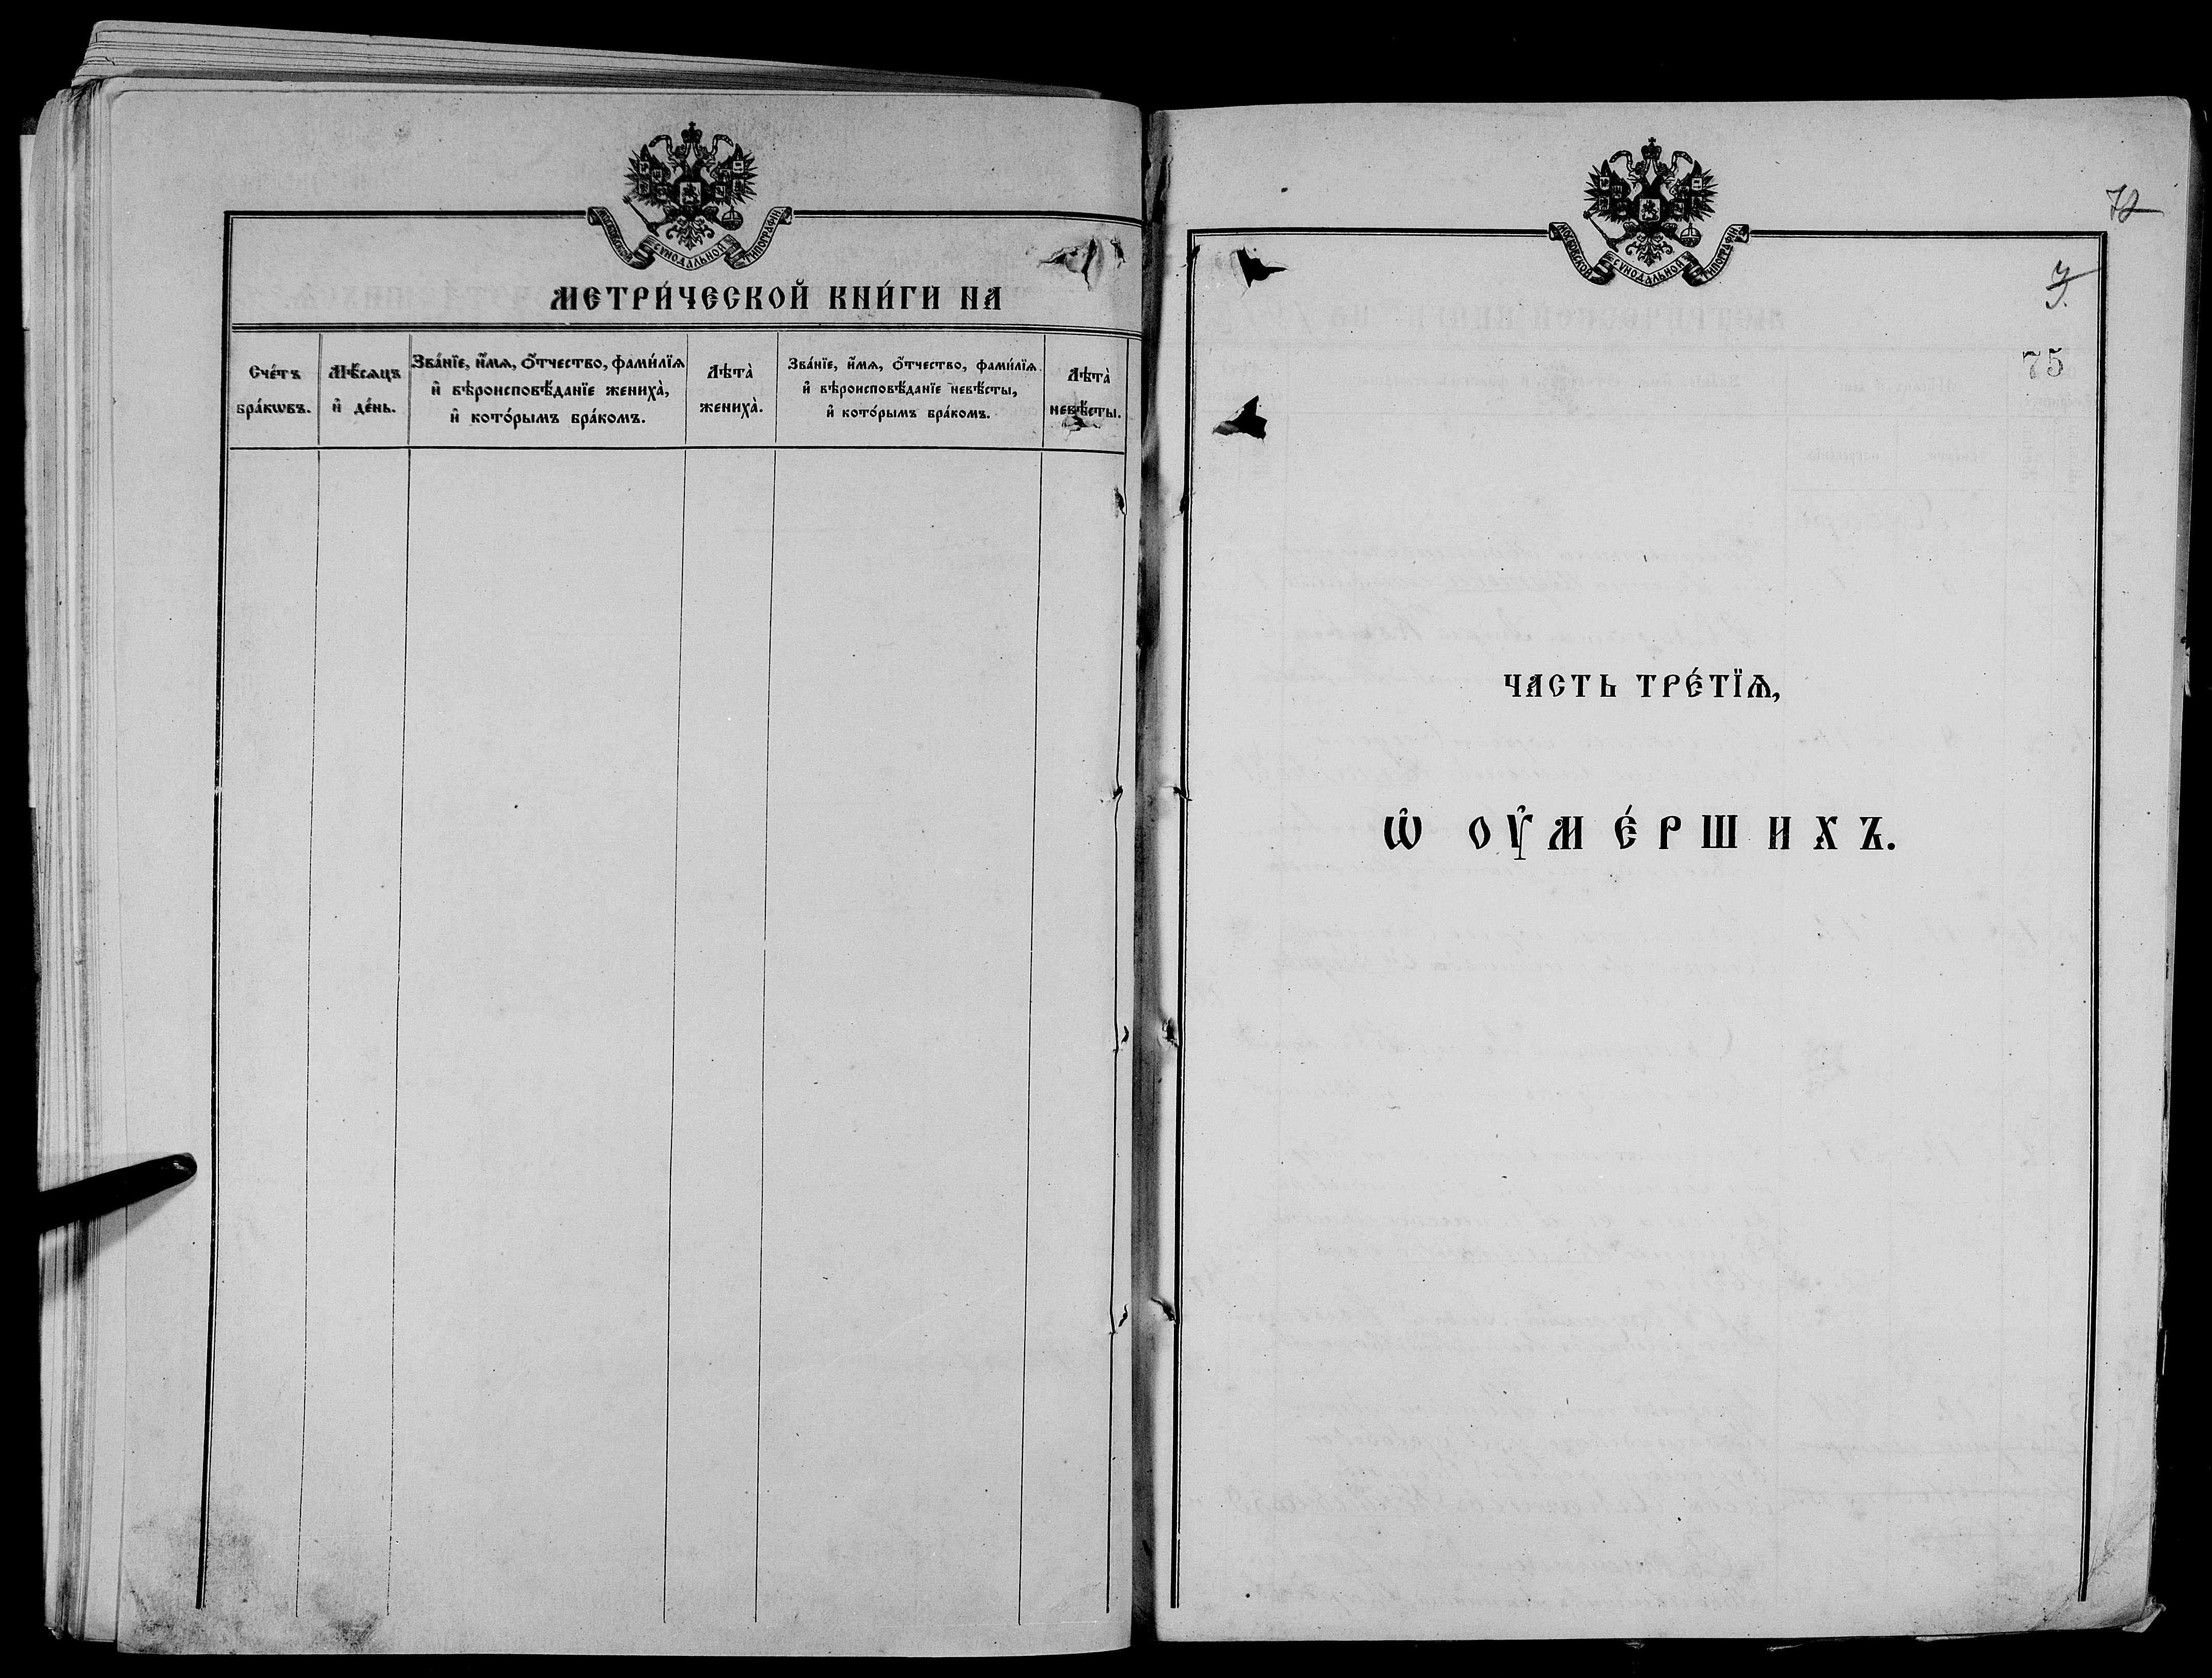 МОСКОВСКОЙ СѴНОДАЛЬНОЙ ТИПОГРАФІИ
МЕТРИ́ЧЕСКОЙ КНИ́ГИ НА
Сче́тъ
бра́кѡвъ.
Мѣ́сѧцъ
и҆ де́нь.
Зва́нїе, и҆́мѧ, ѻ҆́тчество, фами́лїѧ
и҆ вѣроисповѣ́данїе жениха̀,
и҆ кото́рымъ бра́комъ.
Лѣта̀
жениха̀.
Зва́нїе, и҆́мѧ, ѻ҆́тчество, фами́лїѧ
и҆ вѣроисповѣ́данїе невѣ́сты,
и҆ кото́рымъ бра́комъ.
Лѣта̀
невѣ́сты.
МОСКОВСКОЙ СѴНОДАЛЬНОЙ ТИПОГРАФІИ
75
ЧАСТЬ ТРЕ́ТЇѦ,
Ѡ҆ ОУ҆МЕ́РШИХЪ.